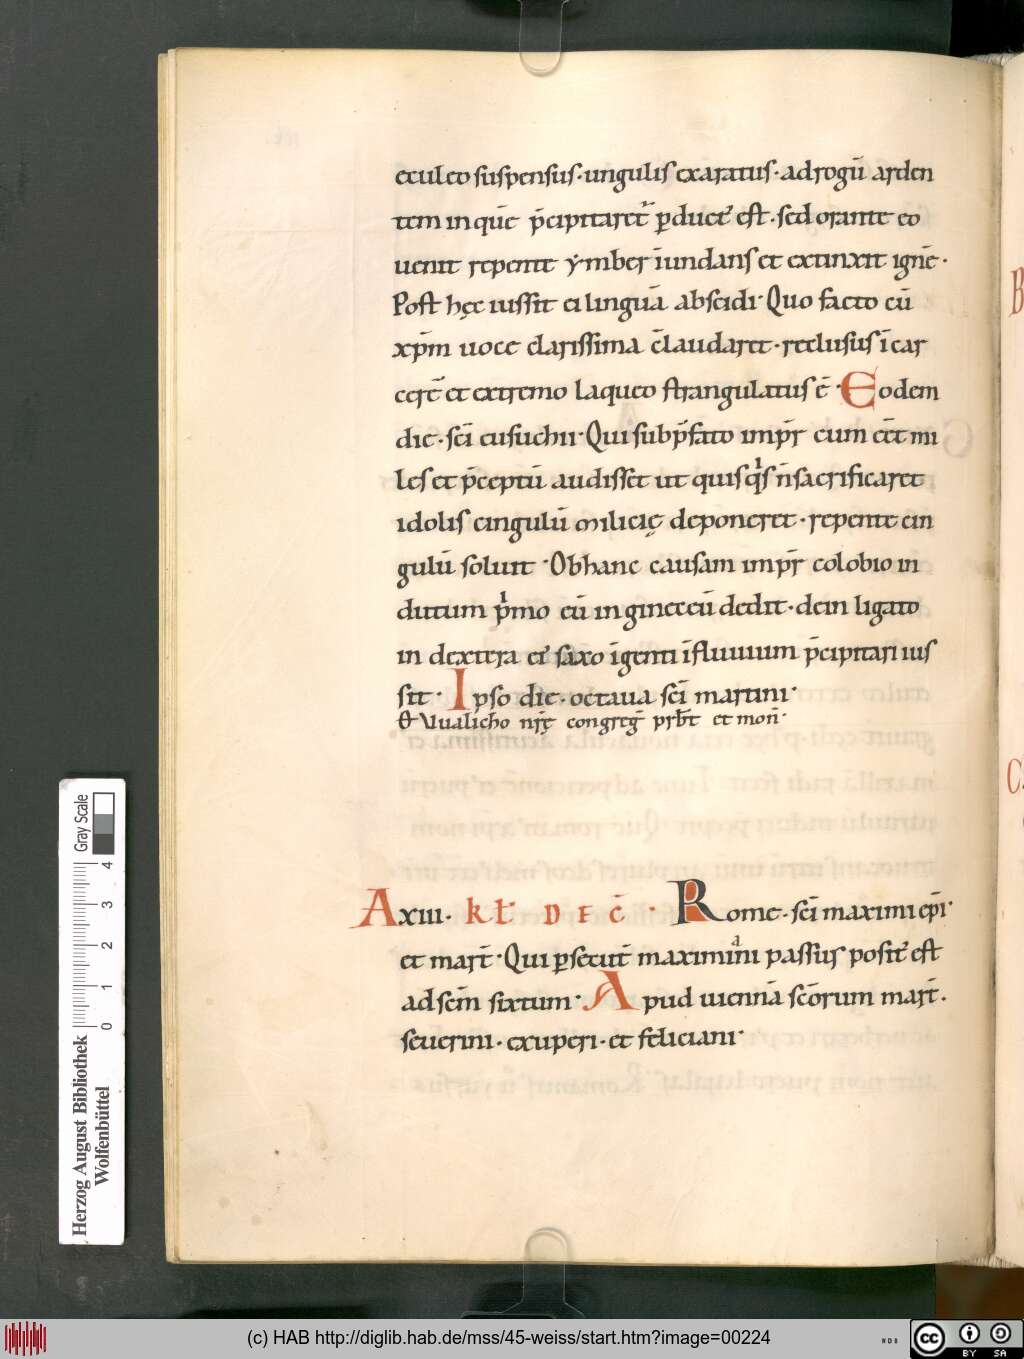 eculeo suspensus · ungulis exaratus · ad rogū arden
tem in quē p̄cipitaret᷑ ꝑduct᷒ est · sed orante eo
uenit repente ymber īundans et extinxit ignē ·
Post hęc iussit ei linguā abscidi · Quo facto cū
xp̄m uoce clarissima c̄laudaret · reclusus ī car
cerē et extremo laqueo strangulatus ē · Eodem
die · sc̄i eusuchii · Qui sub p̄fato imp̄r cum eēt mi
les et p̄ceptū audisset ut quisqͥs n̄ sacrificaret
idolis cingulū milicię deponeret · repente cin
gulū soluit · Ob hanc causam imp̄r colobio in
dutum pͥmo eū in gineceū dedit · dein ligato
in dextera ei᷒ saxo īgenti ī fluuium p̄cipitari ius
sit · Ipso die · octaua sc̄i martini ·
Et Vualicho nr̄ę congreḡ prb̄t et mon̄ ·
A xiii · kł DEC̄ · Rome · sc̄i maximi ep̄i ·
et mart̄ · Qui ꝑsecut̄ maximiᵃni passus posit᷒ est
ad sc̄m sixtum · Apud uiennā sc̄orum mart̄ ·
seuerini · exuperi · et feliciani ·
Gray Scale
4
3
2
1
0
Herzog August Bibliothek
Wolfenbüttel
(c) HAB http://diglib.hab.de/mss/45-weiss/start.htm?image=00224
WDB
cc
BY SA